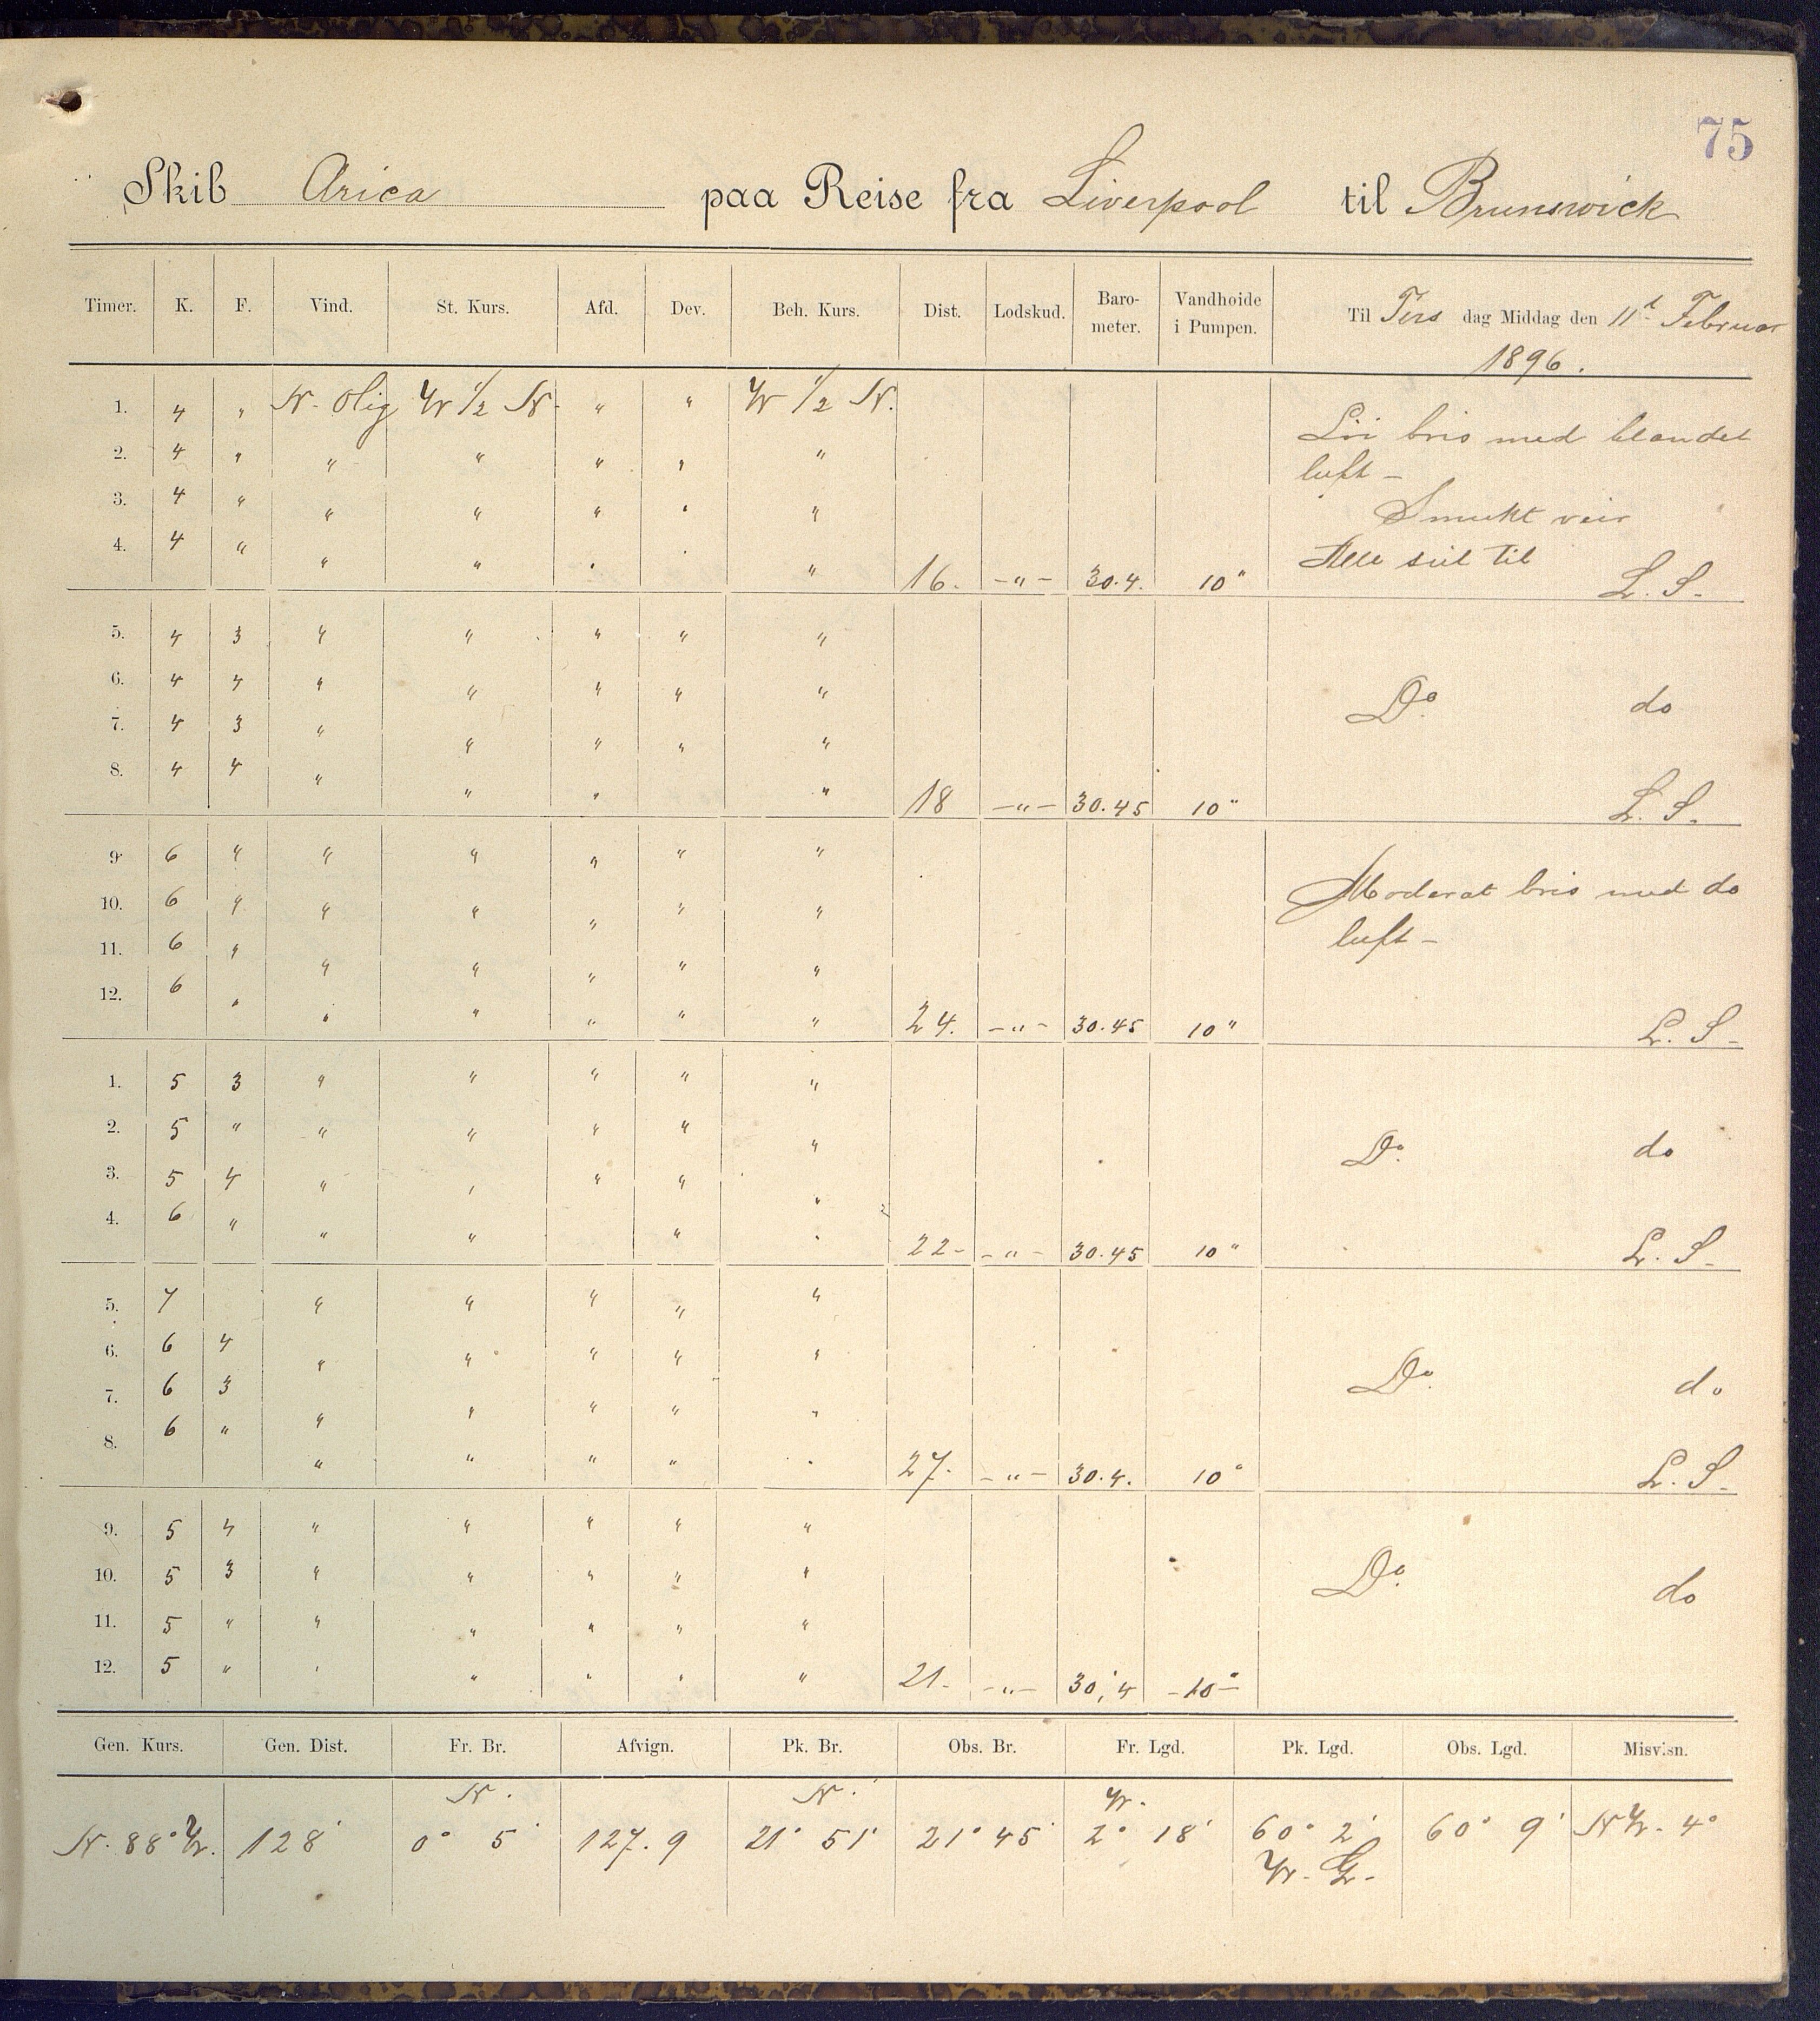 75
Skib Arica paa Reise fra Liverpool til Brunswick
Timer. K. F. Vind. St. Kurs. Afd. Dev. Beh. Kurs. Dist. Lodskud. Baro-meter. Vandhoide i Pumpen. Til Tirs dag Middag den 11t Februar
1896.
1. 4 " N. Olig W 1/2 N. " " W 1/2 N.
Löi bris med blandet
2. 4 " " " " " "
luft –
3. 4 " " " " " "
Smukt veir
4. 4 " " " " " " 16. –"– 30.4. 10" Alle seil til
L. S.
5. 4 3 " " " " "
6. 4 4 " " " " "
Do do
7. 4 3 " " " " "
8. 4 4 " " " " 18 –"– 30.45 10"
L. S.
9. 6 " " " " " "
Moderat bris med do
10. 6 " " " " " "
luft –
11. 6 " " " " " "
12. 6 " " " " " " 24. –"– 30.45 10"
L. S.
1. 5 3 " " " " "
2. 5 " " " " " "
Do do
3. 5 4 " " " " "
4. 6 " " " " " 22– –"– 30.45 10"
L. S.
5. 7 " " " " "
6. 6 4 " " " " "
Do do
7. 6 3 " " " " "
8. 6 " " " " " " 27. –"– 30.4. 10"
L. S.
9. 5 4 " " " " "
10. 5 3 " " " " "
Do do
11. 5 " " " " " "
12. 5 " " " " " " 21. –"– 30,4 –10"–
Gen. Kurs. Gen. Dist. Fr. Br. Afvign. Pk. Br. Obs. Br. Fr. Lgd. Pk. Lgd. Obs. Lgd. Misvisn.
N. N. W.
N. 88° W. 128' 0° 5' 127.9 21° 51' 21° 45' 2° 18' 60° 2' 60° 9' NW. 4°
W. G.